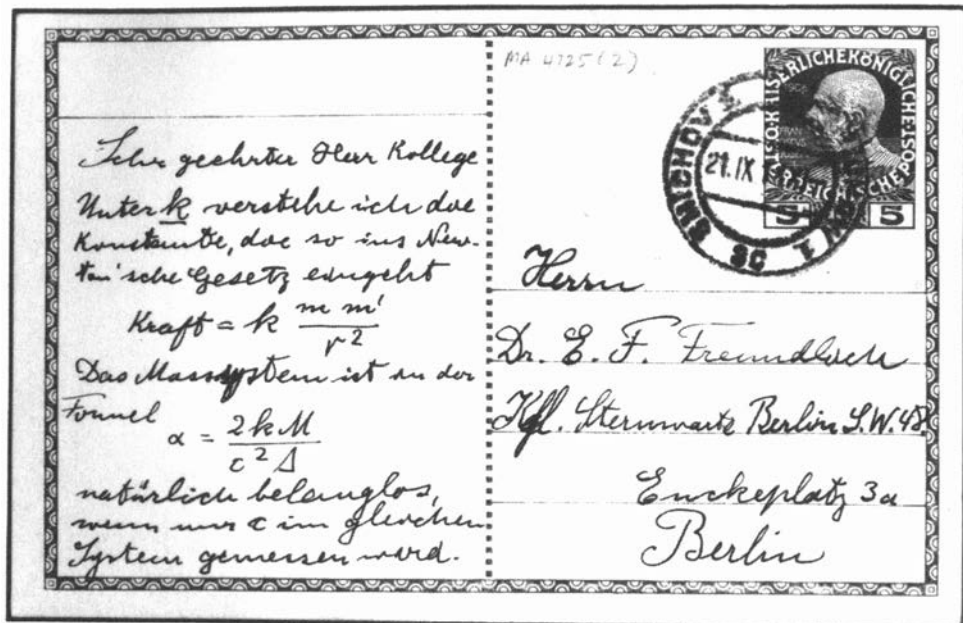 MA 4725 (2)
Sehr geehrter Herr Kollege
Unter k verstehe ich die
Konstante, die so ins New-
ton'sche Gesetz eingeht
Kraft = k m m' / r²
Das Masssystem ist in der
Formel
α = 2 k M / c² Δ
natürlich belanglos,
wenn nur c im gleichen
System gemessen wird.
KAISERLICHEKÖNIGLICHE
ÖSTERREICHISCHEPOST
5 5
SMICHOV 1
21.IX
3c
Herrn
Dr. E. F. Freundlich
Kgl. Sternwarte Berlin S.W.48.
Enckeplatz 3a
Berlin